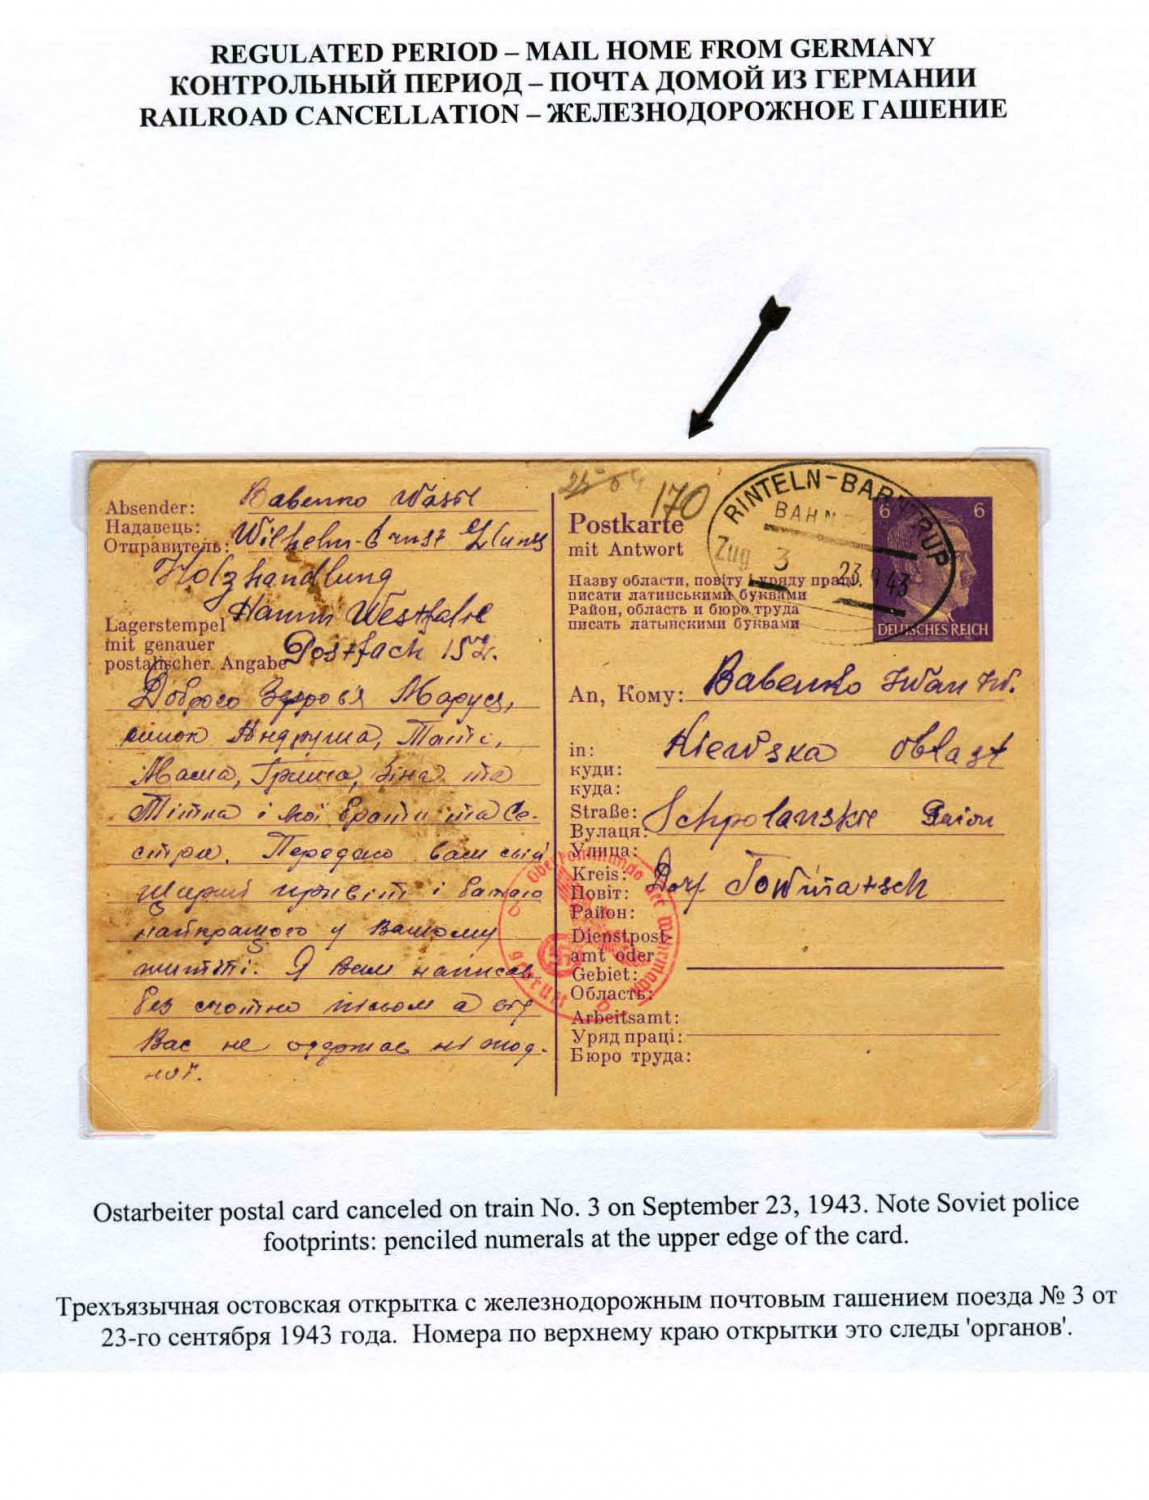 REGULATED PERIOD – MAIL HOME FROM GERMANY
КОНТРОЛЬНЫЙ ПЕРИОД – ПОЧТА ДОМОЙ ИЗ ГЕРМАНИИ
RAILROAD CANCELLATION – ЖЕЛЕЗНОДОРОЖНОЕ ГАШЕНИЕ
Absender: Babenko Wasil
Надавець:
Отправитель: Wilhelm-Ernst
Holzhandlung
Hamm Westfalie
Lagerstempel
mit genauer
postalischer Angabe
Postfach 152.
Доброго Здоров'я Маруся,
синок Андрюша, Тато,
Мама, Гриша, Зіна та
Тітка і мої брати та Се-
стри. Передаю вам свій
щирий привіт і бажаю
найкращого у Вашому
житті. Я Вам написав
без счотно письом а від
Вас не одержав ні жод-
ної.
170
Postkarte
mit Antwort
RINTELN-BARNTRUP
BAHN
Zug 3
23.9.43
6 6
DEUTSCHES REICH
Назву области, повіту і уряду праці
писати латинськими буквами
Район, область и бюро труда
писать латынскими буквами
An, Кому: Babenko Iwan Iw.
in: Kiewska oblast
куди:
куда:
Straße: Schpolanskie Raion
Вулаця:
Улица:
Kreis: Dorf Towmatsch
Повіт:
Район:
Dienstpost-
amt oder
Gebiet:
Область:
Arbeitsamt:
Уряд праці:
Бюро труда:
Oberkommando der Wehrmacht
geprüft
b b
Ostarbeiter postal card canceled on train No. 3 on September 23, 1943. Note Soviet police
footprints: penciled numerals at the upper edge of the card.
Трехъязычная остовская открытка с железнодорожным почтовым гашением поезда № 3 от
23-го сентября 1943 года. Номера по верхнему краю открытки это следы 'органов'.